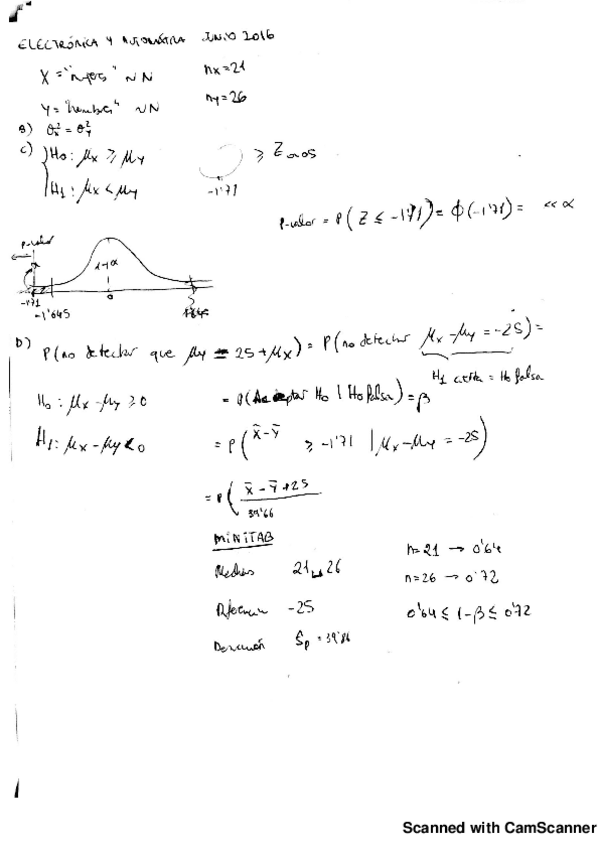 ELECTRÓNICA Y AUTOMÁTICA JUNIO 2016
X = "mujeres" ~ N    nx=21
Y = "hombres" ~ N    ny=26
B) σ²x = σ²y
C) H0: μx ≥ μy    ≥ Z0'05
H1: μx < μy    -1'71
P-valor = P(Z ≤ -1'71) = ϕ(-1'71) = << α
P-valor
1-α
-1'71    0    1'645
-1'645
D) P(no detectar que μy = 25+μx) = P(no detectar μx - μy = -25) =
H1 cierta = H0 falsa
H0: μx - μy ≥ 0    = P(Aceptar H0 | H0 falsa) = β
H1: μx - μy < 0    = P( X̄-Ȳ ≥ -1'71 | μx - μy = -25)
= P( X̄ - Ȳ + 25
39'66
MINITAB
Medias    21 y 26    n=21 → 0'64
Diferencia    -25    n=26 → 0'72
0'64 ≤ 1-β ≤ 0'72
Desviación    Ŝp = 39'86
Scanned with CamScanner